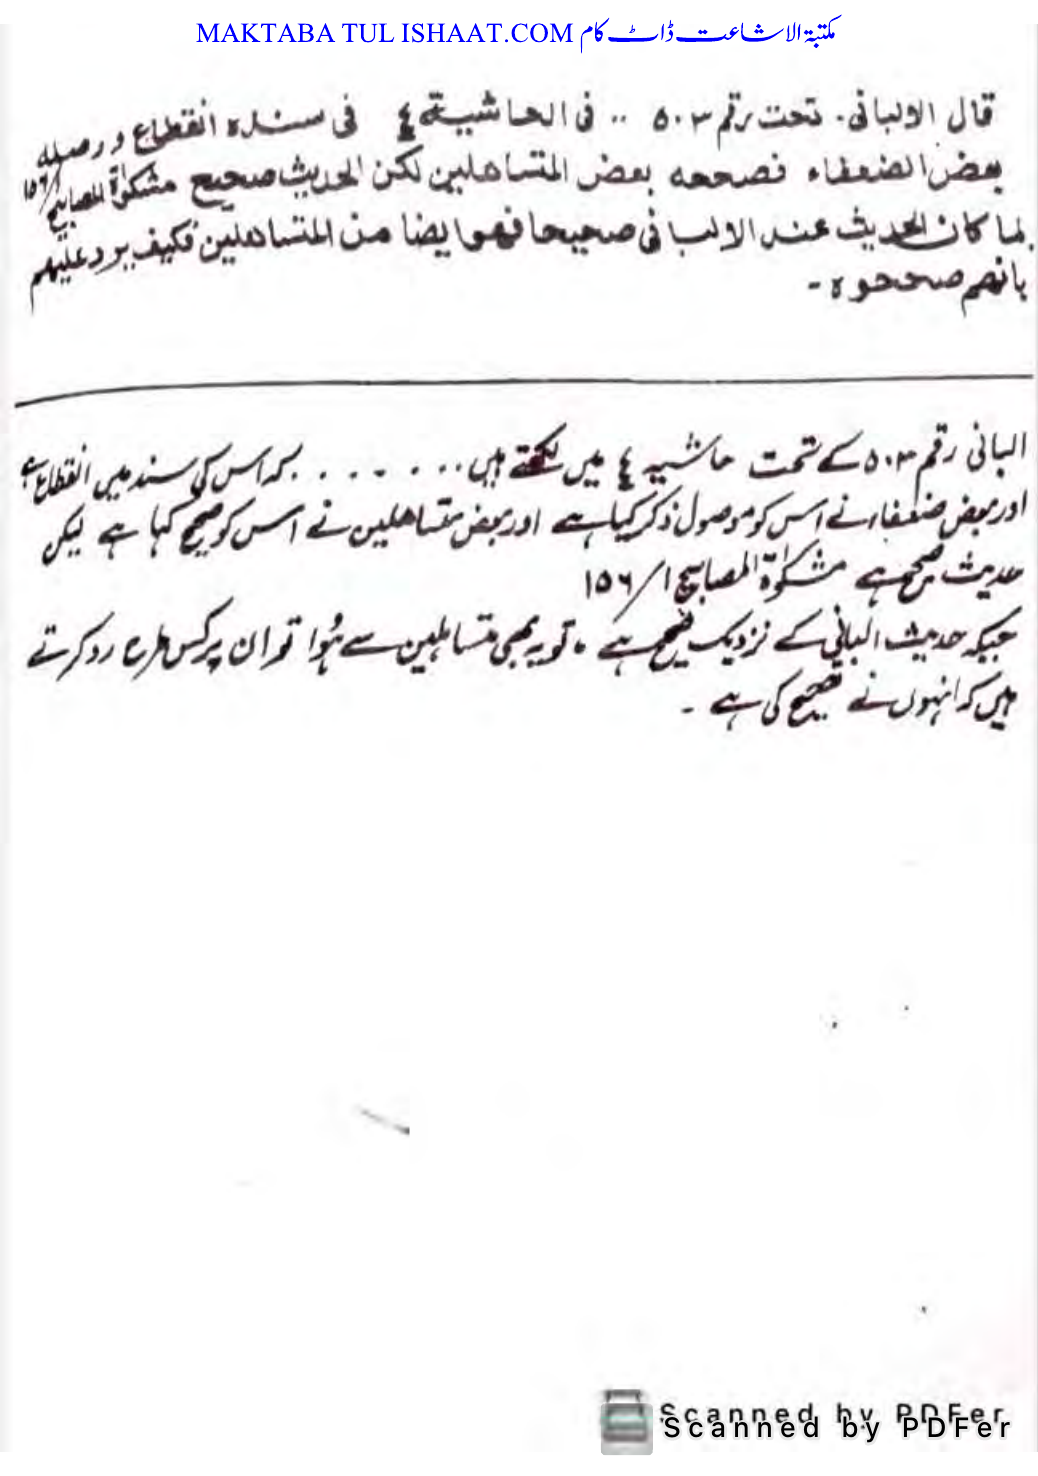 MAKTABA TUL ISHAAT.COM مکتبۃ الاشاعت ڈاٹ کام
قال الالبانی۔ تحت رقم ۵۰۳ .. فی الحاشیۃ ٤ فی سندہ انقطاع و وصلہ
بعض الضعفاء فصححہ بعض المتساھلین لکن الحدیث صحیح مشکوٰۃ المصابیح ۱/۱۵۶
لما کان الحدیث عند الالبانی صحیحا فھو ایضا من المتساھلین فکیف یرد علیھم
بانھم صححوہ ۔
البانی رقم ۵۰۳ کے تحت حاشیہ ٤ میں لکھتے ہیں . . . . . . . . کہ اس کی سند میں انقطاع ہے
اور بعض ضعفاء نے اس کو موصول ذکر کیا ہے اور بعض متساھلین نے اس کو صحیح کہا ہے لیکن
حدیث صحیح ہے مشکوٰۃ المصابیح ۱/۱۵۶
جبکہ حدیث البانی کے نزدیک صحیح ہے ، تو یہ بھی متساہلین سے ہُوا تو ان پر کس طرح رد کرتے
ہیں کہ انہوں نے تصحیح کی ہے ۔
Scanned by PDFer
Scanned by PDFer